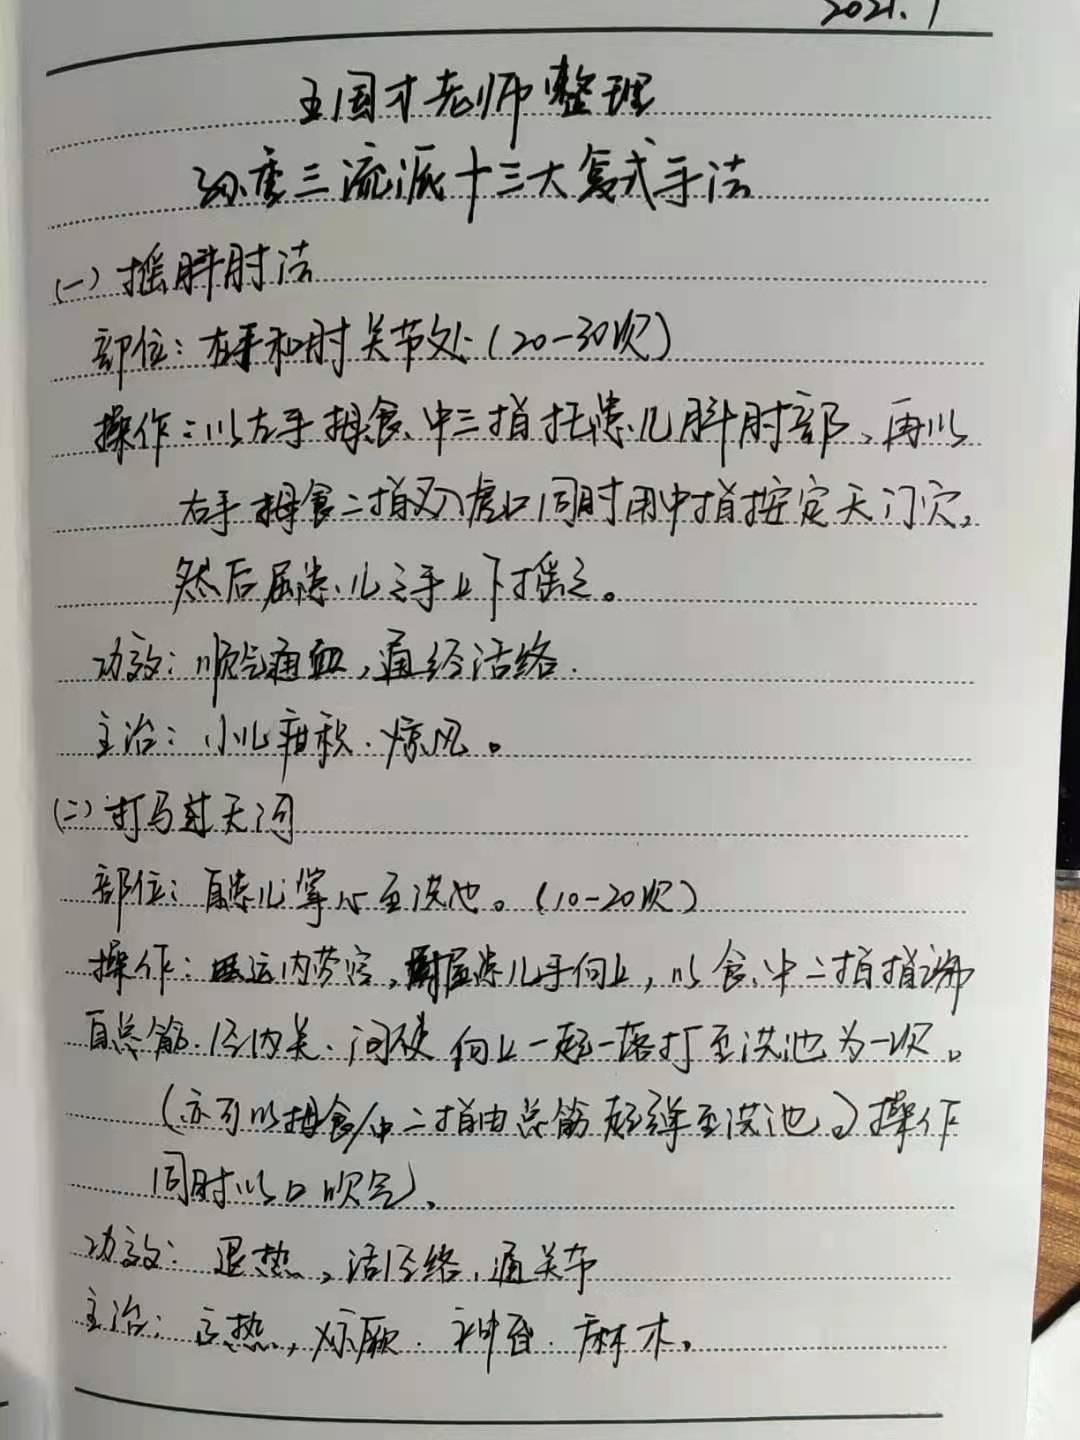 2021.1
王国才老师整理
孙重三流派十三大复式手法
(一)摇䏝肘法
部位：左手和肘关节处(20-30次)
操作：以左手拇食、中三指托患儿䏝肘部、再以
右手拇食二指叉入虎口同时用中指按定天门穴，
然后屈患儿之手上下摇之。
功效：顺气通血，通经活络.
主治：小儿疳积.惊风。
(二)打马过天河
部位：自患儿掌心至洪池。(10-20次)
操作：运内劳宫，屈患儿手向上，以食、中二指指端
自总筋.经内关.间使向上一起一落打至洪池为一次。
(亦可以拇食/中二指由总筋起弹至洪池。)操作
同时以口吹气)。
功效：退热，活经络，通关节
主治：高热，惊厥.神昏.麻木。